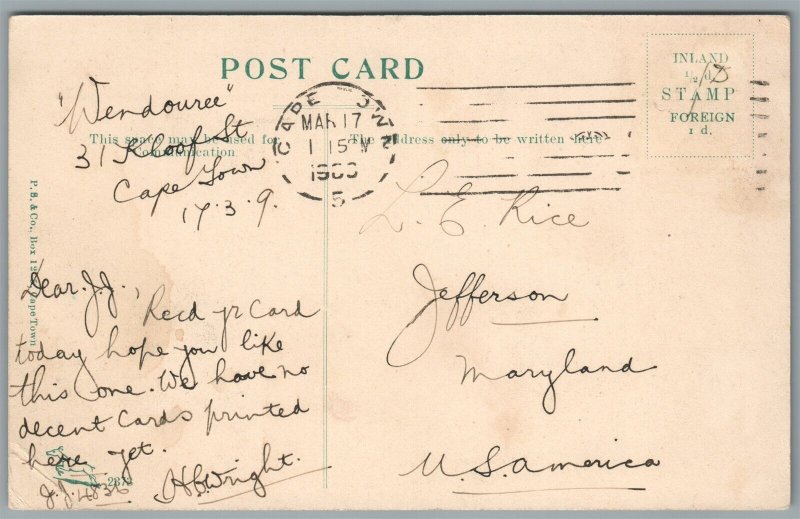 POST CARD
INLAND
½ d.
STAMP
FOREIGN
1 d.
CAPE TOWN
MAR 17
1 15
1909
5
This space may be used for
Communication
The address only to be written here
P. S. & Co., Box Cape Town
"Wendouree"
31 Kloof St
Cape Town
17.3.9.
Dear J.J.,
Recd yr Card
today hope you like
this one. We have no
decent Cards printed
here yet.
HBWright.
J.J. 4836
2873
L. E. Rice
Jefferson
Maryland
U.S. America